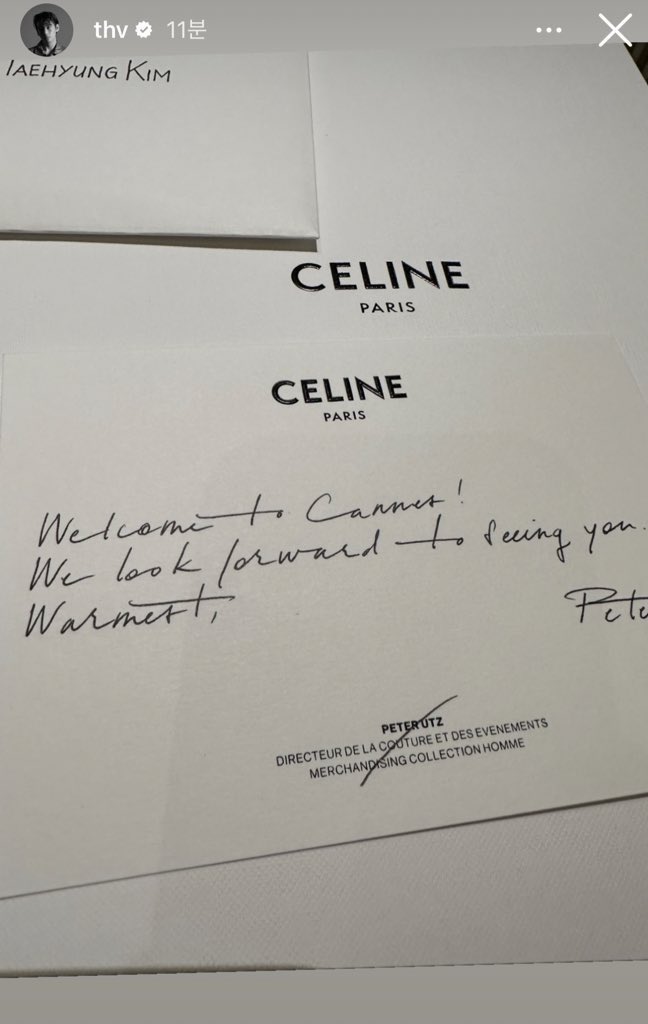 thv 11분
TAEHYUNG KIM
CELINE
PARIS
CELINE
PARIS
Welcome to Cannes!
We look forward to seeing you.
Warmest,
PETER UTZ
DIRECTEUR DE LA COUTURE ET DES EVENEMENTS
MERCHANDISING COLLECTION HOMME